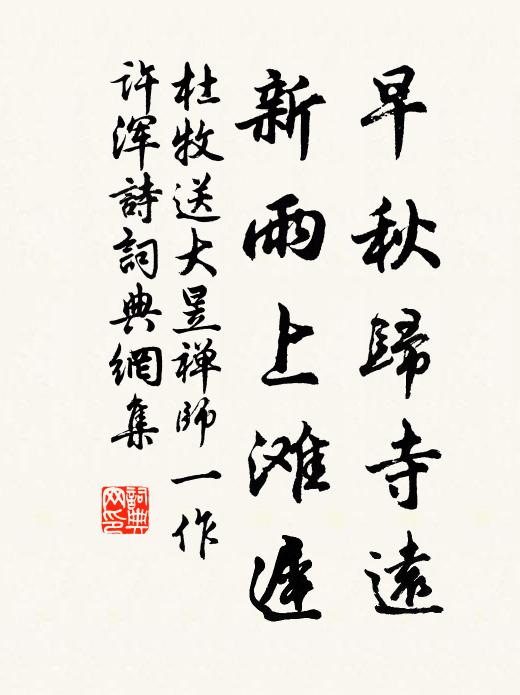 早秋歸寺遠
新雨上滩遲
杜牧送大昱禅師一作
许浑詩詞典網集
詞典
网印